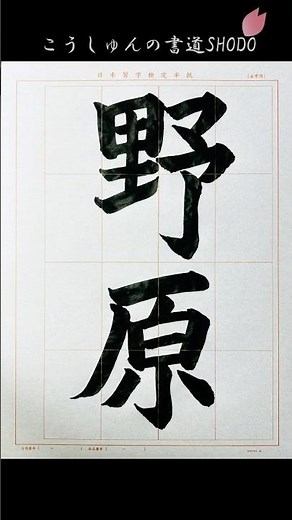 こうしゅんの書道SHODO
日本習字検定半紙
野原